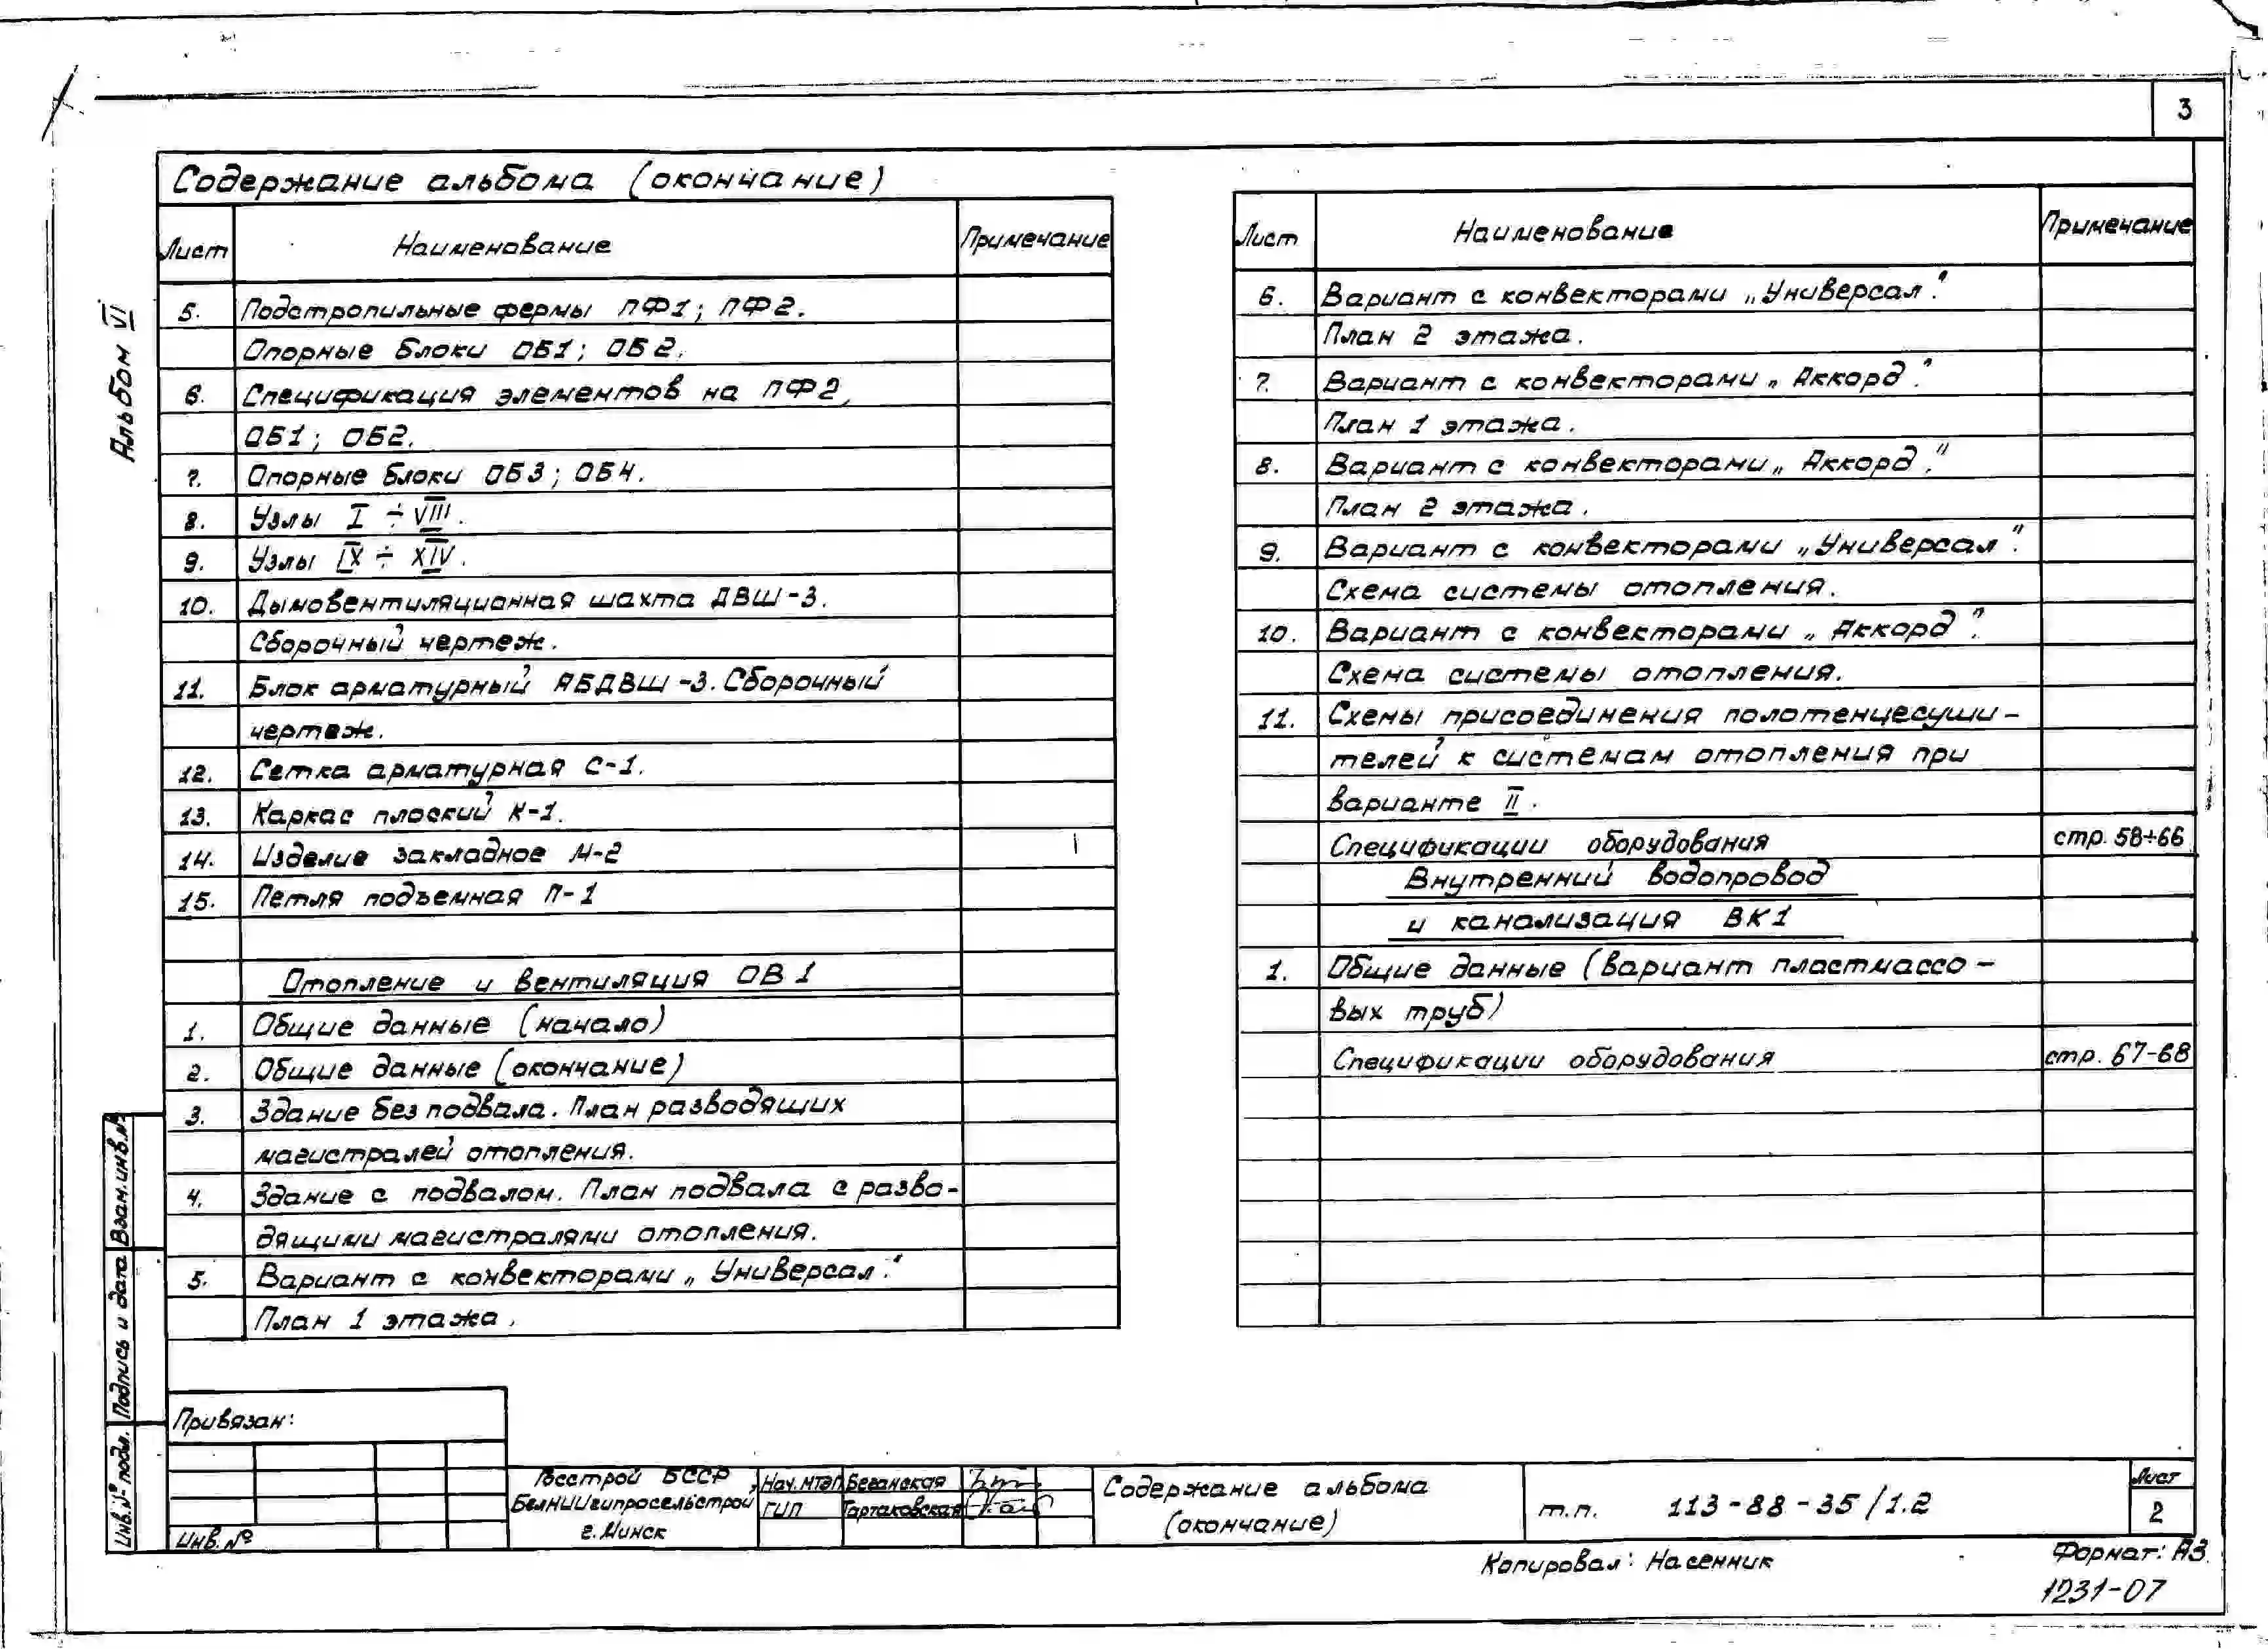 3
Альбом VI
Содержание альбома (окончание)
Лист Наименование Примечание
5. Подстропильные фермы ПФ1; ПФ2.
Опорные блоки ОБ1; ОБ2.
6. Спецификация элементов на ПФ2,
ОБ1; ОБ2.
7. Опорные блоки ОБ3; ОБ4.
8. Узлы I ÷ VIII.
9. Узлы IX ÷ XIV.
10. Дымовентиляционная шахта ДВШ-3.
Сборочный чертеж.
11. Блок арматурный АБДВШ-3. Сборочный
чертеж.
12. Сетка арматурная С-1.
13. Каркас плоский К-1.
14. Изделие закладное М-2
15. Петля подъемная П-1
Отопление и вентиляция ОВ1
1. Общие данные (начало)
2. Общие данные (окончание)
3. Здание без подвала. План разводящих
магистралей отопления.
4. Здание с подвалом. План подвала с разво-
дящими магистралями отопления.
5. Вариант с конвекторами „Универсал".
План 1 этажа.
Лист Наименование Примечание
6. Вариант с конвекторами „Универсал".
План 2 этажа.
7. Вариант с конвекторами „Аккорд".
План 1 этажа.
8. Вариант с конвекторами „Аккорд".
План 2 этажа.
9. Вариант с конвекторами „Универсал".
Схема системы отопления.
10. Вариант с конвекторами „Аккорд".
Схема системы отопления.
11. Схемы присоединения полотенцесуши-
телей к системам отопления при
варианте II.
Спецификации оборудования стр. 58÷66
Внутренний водопровод
и канализация ВК1
1. Общие данные (вариант пластмассо-
вых труб)
Спецификации оборудования стр. 67-68
Взам.инв.№
Подпись и дата
Инв.№ подл.
Привязан:
Инв.№
Госстрой БССР
БелНИИгипросельстрой
г. Минск
Нач.МТЭП Беганская
ГИП Тартаковская
Содержание альбома
(окончание)
т.п. 113-88-35/1.2
Лист
2
Копировал: Насенник
Формат: А3
1231-07